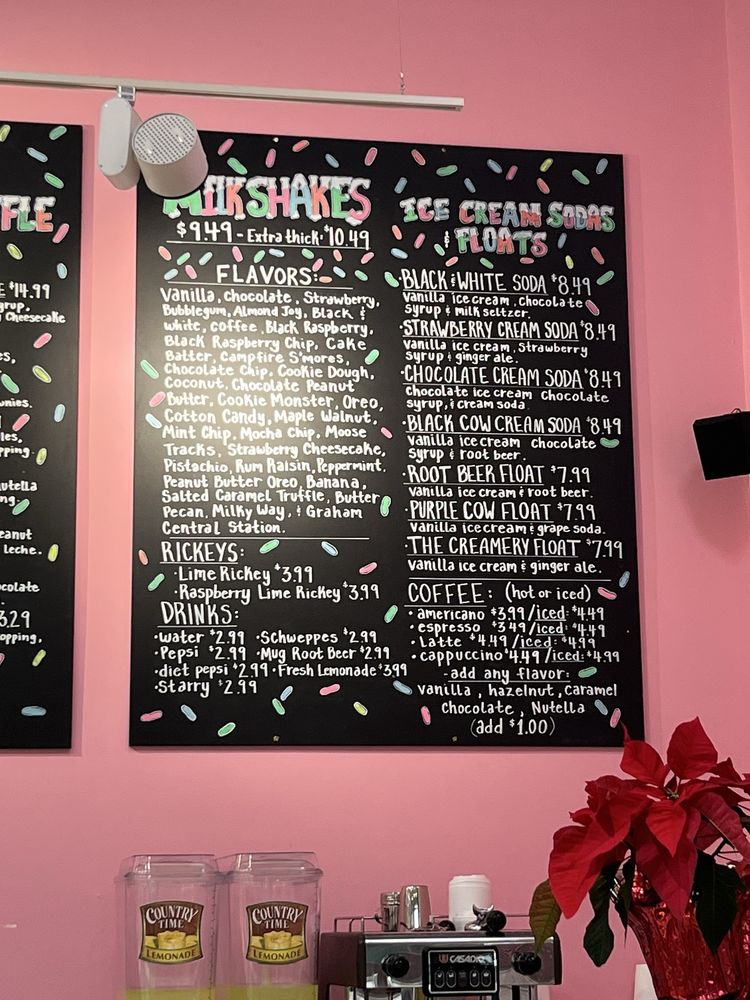 FFLE
E $14.99
syrup,
y Cheesecake
es,
wnies.
les,
pping.
Nutella
ng.
eanut
leche.
ocolate
3.29
opping,
MILKSHAKES
$9.49 - Extra thick: $10.49
FLAVORS:
Vanilla, chocolate, Strawberry,
Bubblegum, Almond Joy, Black &
white, coffee, Black Raspberry,
Black Raspberry Chip, Cake
Batter, Campfire S'mores,
Chocolate Chip, Cookie Dough,
Coconut, Chocolate Peanut
Butter, Cookie Monster, Oreo,
Cotton Candy, Maple Walnut,
Mint Chip, Mocha Chip, Moose
Tracks, Strawberry Cheesecake,
Pistachio, Rum Raisin, Peppermint,
Peanut Butter Oreo, Banana,
Salted Caramel Truffle, Butter
Pecan, Milky Way, & Graham
Central Station.
RICKEYS:
·Lime Rickey $3.99
·Raspberry Lime Rickey $3.99
DRINKS:
·water $2.99 ·Schweppes $2.99
·Pepsi $2.99 ·Mug Root Beer $2.99
·diet pepsi $2.99 ·Fresh Lemonade $3.99
·Starry $2.99
ICE CREAM SODAS
& FLOATS
·BLACK & WHITE SODA $8.49
Vanilla ice cream, chocolate
syrup & milk seltzer.
·STRAWBERRY CREAM SODA $8.49
vanilla ice cream, Strawberry
syrup & ginger ale.
·CHOCOLATE CREAM SODA $8.49
Chocolate ice cream chocolate
syrup, & cream soda
·BLACK COW CREAM SODA $8.49
vanilla ice cream chocolate
syrup & root beer.
·ROOT BEER FLOAT $7.99
vanilla ice cream & root beer.
·PURPLE COW FLOAT $7.99
vanilla ice cream & grape soda.
·THE CREAMERY FLOAT $7.99
vanilla ice cream & ginger ale.
COFFEE: (hot or iced)
·americano $3.99/iced: $4.49
·espresso $3.49/iced: $4.49
·latte $4.49/iced: $4.99
·cappuccino $4.49/iced: $4.99
-add any flavor:
vanilla, hazelnut, caramel
chocolate, Nutella
(add $1.00)
COUNTRY
TIME
LEMONADE
COUNTRY
TIME
LEMONADE
CASADIO